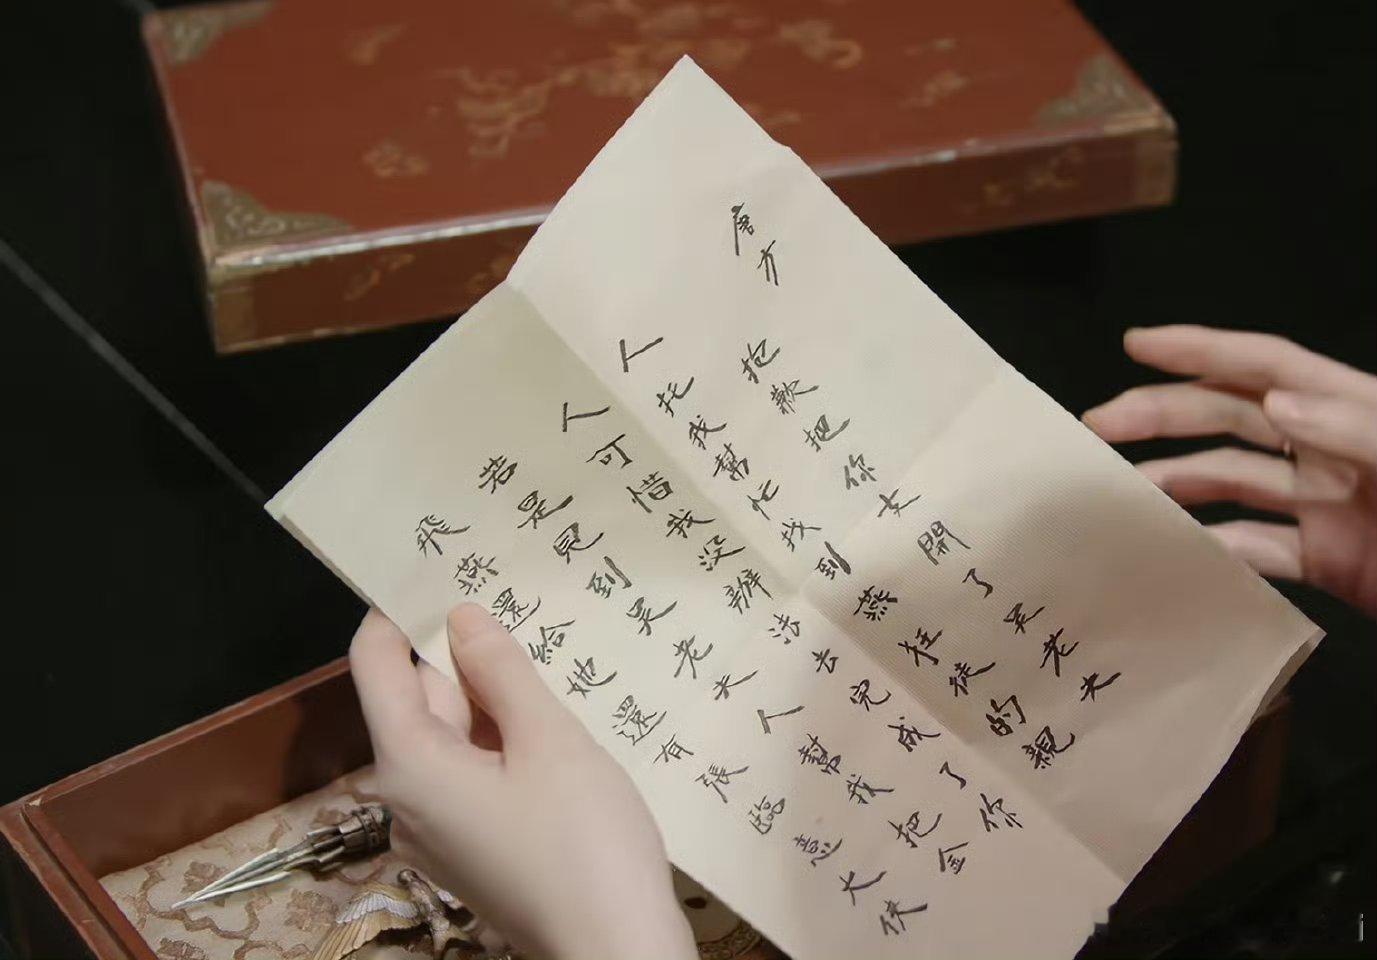 唐方
抱歉把你支開了吴老夫
人托我幫忙找到燕狂徒的親
人可惜我没辦法去完成了你
若是見到吴老夫人幫我把金
飛燕還給她還有張臨意大侠